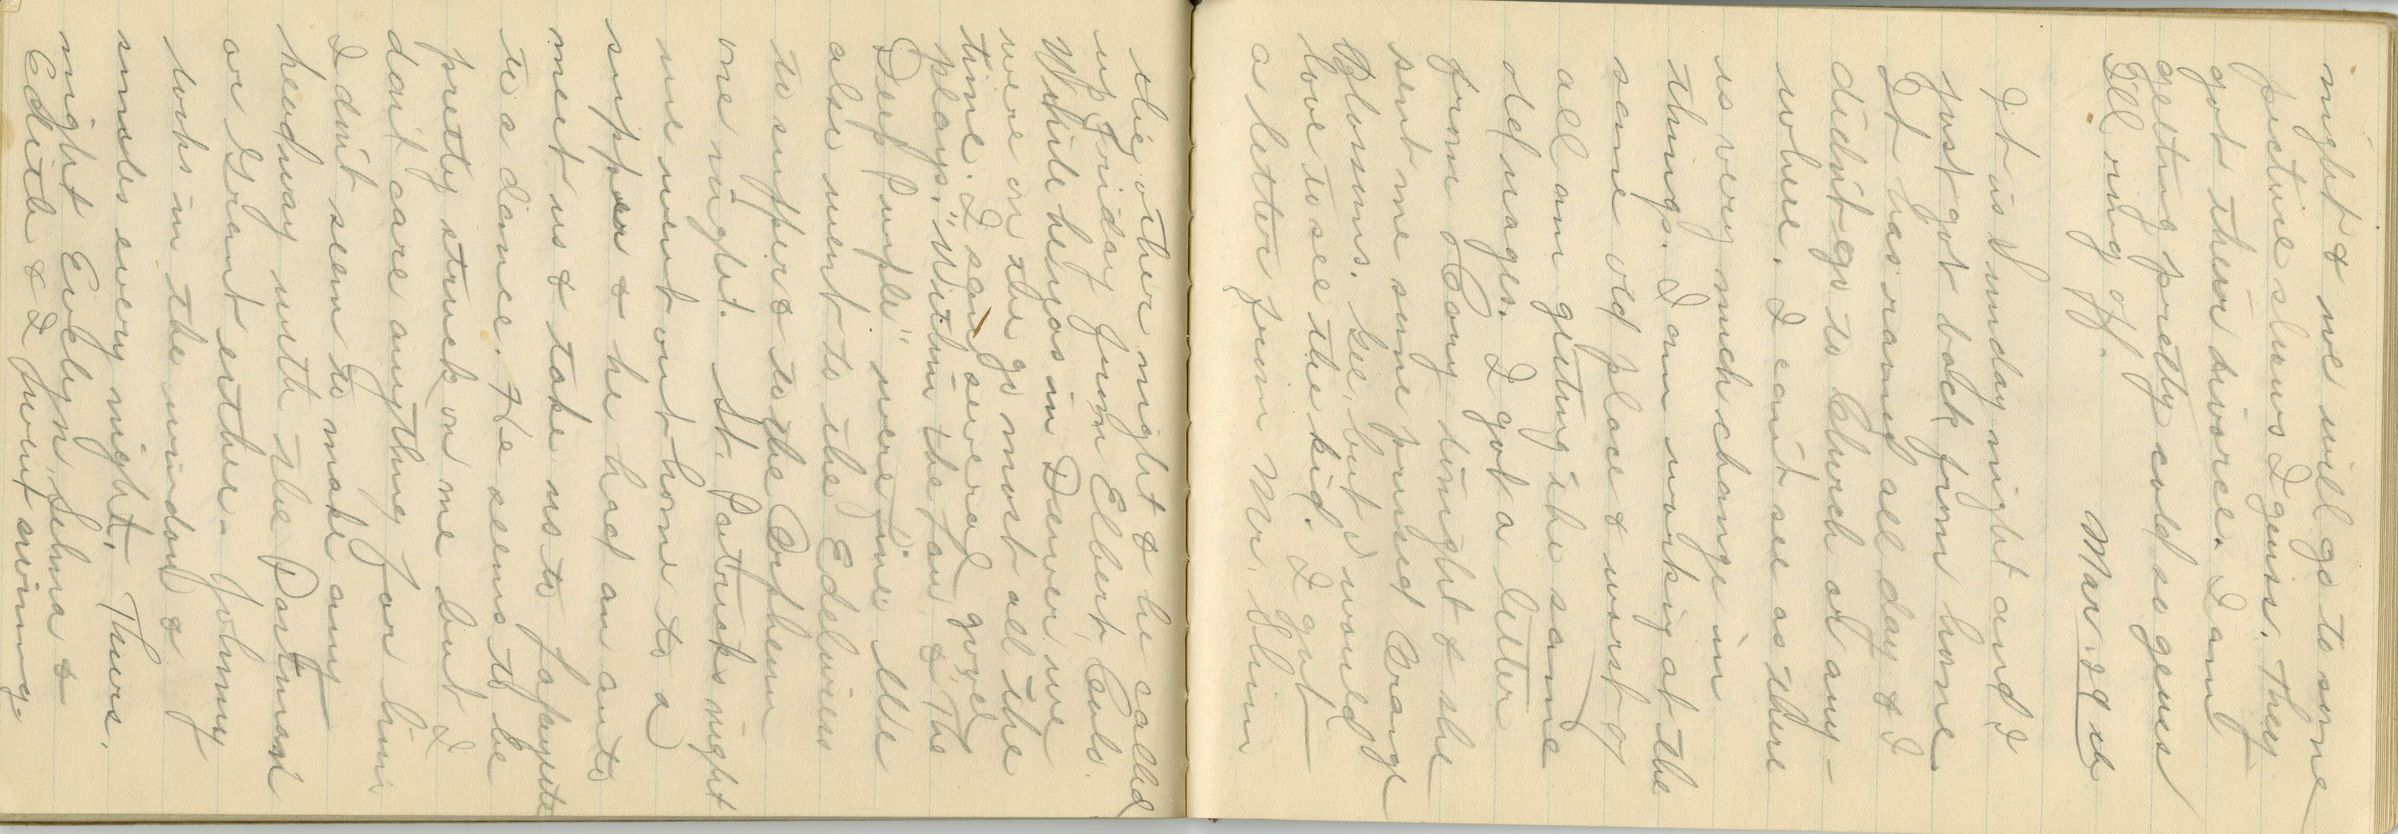 might & we will go to some
picture shows I guess. They
got their divorce. I am
getting pretty cold so guess
I'll ring off.
Mar. 29th
It is Sunday night and I
just got back from home.
It has rained all day & I
didn't go to Church or any-
where. I can't see as there
is very much change in
things. I am working at the
same old place & worst of
all am getting the same
old wages. I got a letter
from Rony tonight & she
sent me some pressed Orange
Blossoms. Gee, but I would
love to see the kid. I got
a letter from Mr. Blinn
the other night & he called
up Friday from Elbert, Colo.
While he was in Denver, we
were on the go most all the
time. I saw several good
plays. "Within the Law" & "The
Deep Purple" were fine. We
also went to the Edelweiss
to supper & to the Orpheum
one night. St. Patricks night
we went out home to a
supper & he had an auto
meet us & take us to
to a dance. He seems to be
pretty struck on me but I
don't care anything for him.
I don't seem to make any
headway with the Partman
or Grant either. Johnny
looks in the window &
smiles every night. Thurs.
night Evelyn, Selma &
Edith & I went swimming